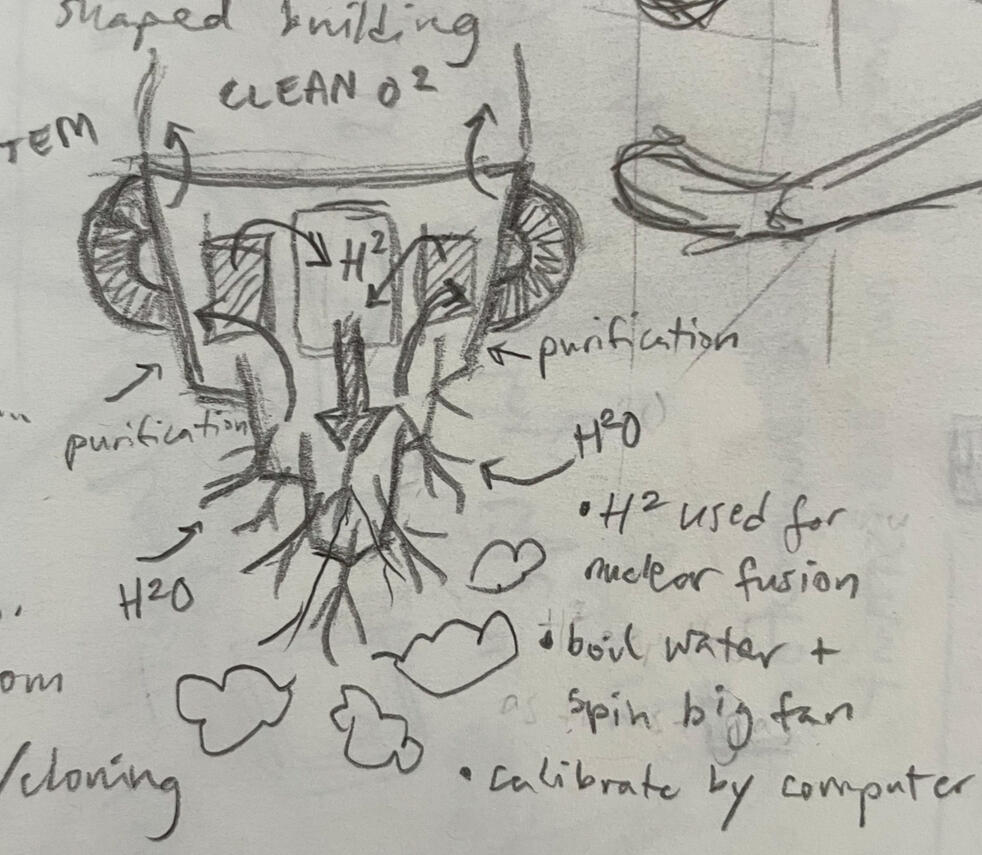 shaped building
CLEAN O²
TEM
H²
purification
purification
H²O
H²O
• H² used for
nuclear fusion
• boil water +
spin big fan
om
/cloning
• calibrate by computer